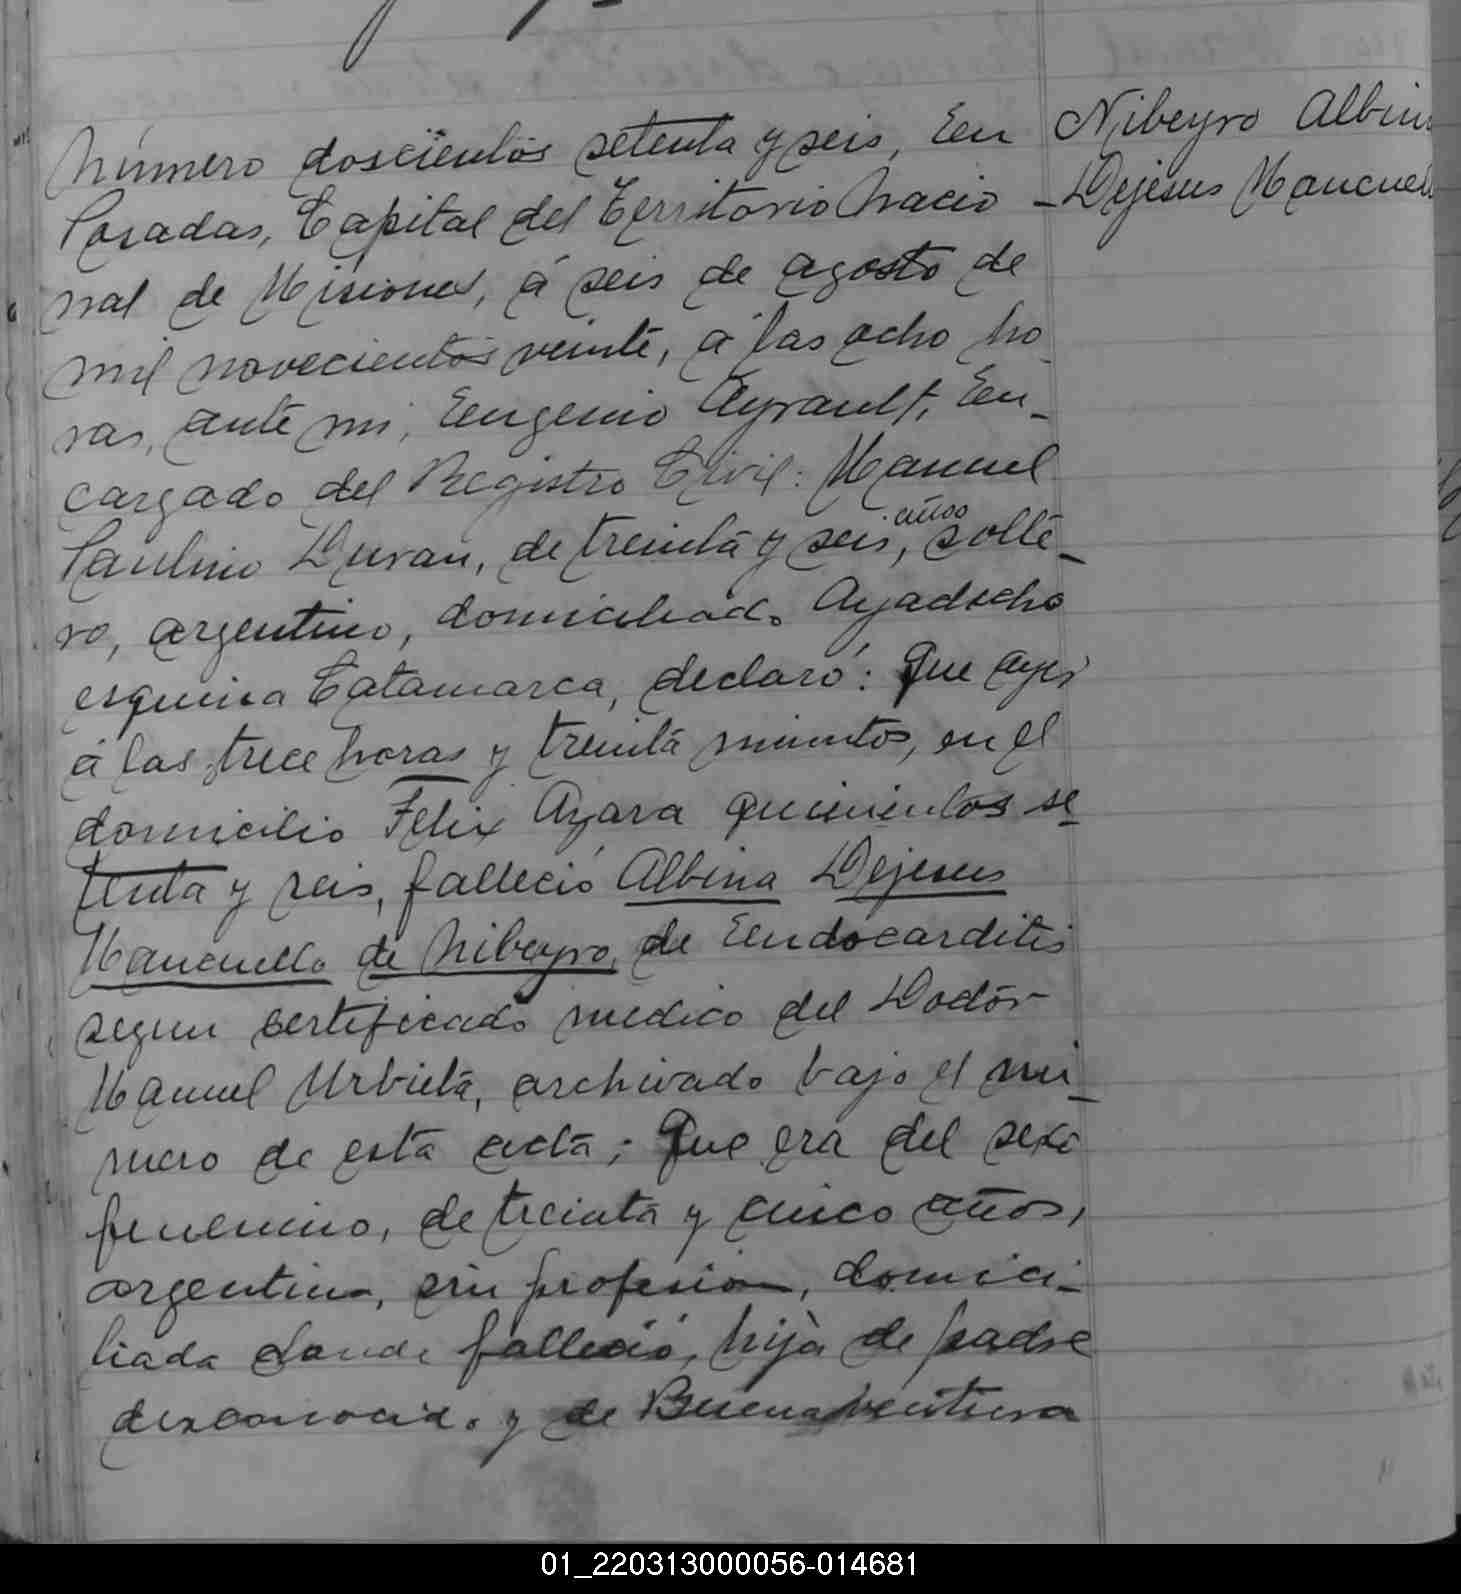 Número doscientos setenta y seis, En
Posadas, Capital del Territorio Nacio
nal de Misiones, á seis de agosto de
mil novecientos veinte, á las ocho ho
ras, ante mi, Eugenio Ayrault, En-
cargado del Registro Civil: Manuel
Paulino Duran, de treinta y seis, años solte-
ro, argentino, domiciliado Ayacucho
esquina Catamarca, declaró: Que ayer
á las trece horas y treinta minutos, en el
domicilio Felix Azara quinientos se
tenta y seis, falleció Albina Dejesus
Mancuello de Nibeyro, de Endocarditis
segun certificado medico del Doctór
Manuel Urbieta, archivado bajo el nú-
mero de esta acta; Que era del sexo
femenino, de treinta y cinco años,
argentina, sin profesion, domici-
liada donde falleció, hija de padre
desconocido y de Buenaventura
Nibeyro Albina
Dejesus Mancuello
01_220313000056-014681